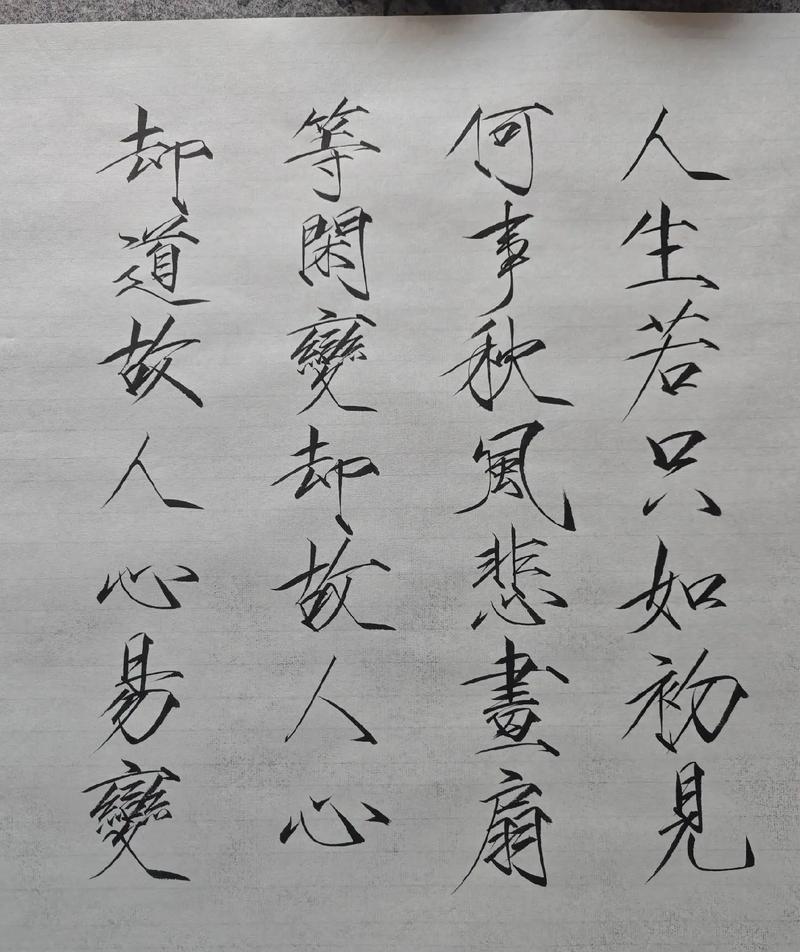 人生若只如初見
何事秋風悲畫扇
等閑變却故人心
却道故人心易變